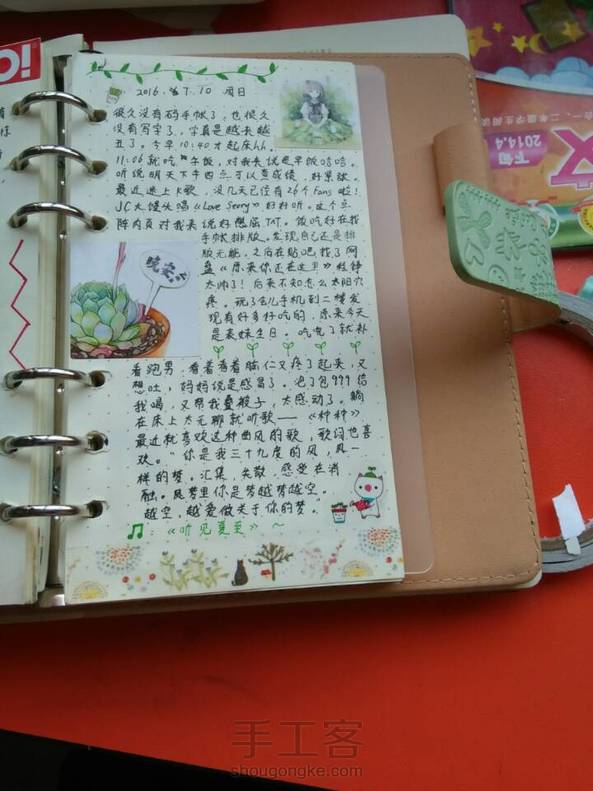 2016.7.10 周日
很久没有码手帐了，也很久
没有写字了，字真是越来越
丑了。今早10:40才起床hh。
11:06就吃"午饭，对我来说是早饭哈哈。
听说明天下午四点可以查成绩，好紧张。
最近迷上K歌，没几天已经有26个Fans啦！
JC大馒头唱《Love Story》好好听。这个点
阵内页对我来说好想屈TAT。饭吃好在找
手帐排版。发现自己还是排
版无能，之后在贴吧找了网
盘《原来你还在这里》程铮
太帅了！后来不知怎么太阳穴
疼。玩了会儿手机到二楼发
现有好多好吃的，原来今天
是表妹生日。吃完了就补
晚安
看跑男，看着看着脑仁又疼了起来，又
想吐，妈妈说是感冒了。泡了包999给
我喝，又帮我叠被子，太感动了。躺
在床上太无聊就听歌——《种种》
最近就喜欢这种曲风的歌，歌词也喜
欢。"你是我三十九度的风，风一
样的梦。汇集，失散，感受在消
融。凤梦里你是梦越梦越空。
越空，越爱做关于你的梦。
：《听见夏至》~
O!
下旬
2014.4
文
手工客
shougongke.com